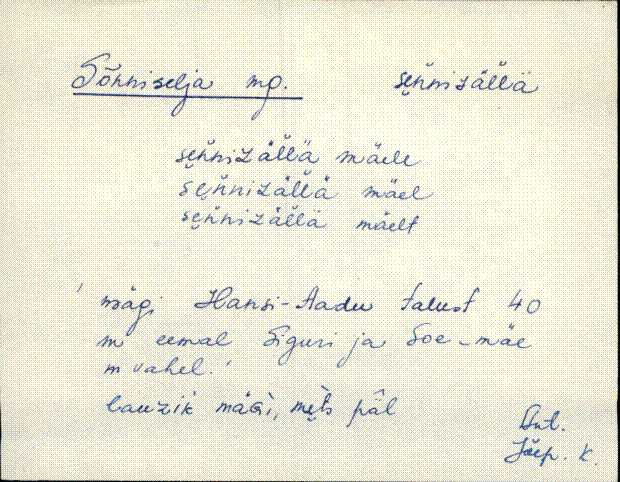 Sõnniselja mg. sę̌ňnizäl̆l̆ä
sę̌ňnizäl̆l̆ä mäele
sę̌ňnizäl̆l̆ä mäel
sę̌ňnizäl̆l̆ä mäelt
'mägi Hansi-Aadu talust 40
m eemal Siguri ja Soe-mäe
m vahel.'
lauzik mägi, męts päl
Ant.
Jõep. K.